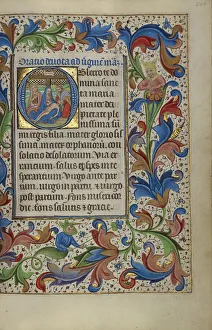 Oratio devota ad virginem mariā
Obsecro te do
mina sanc
ta maria
mater dei
pietate ple
nissima sū
mi regis filia mater glorio sis
sima mater orphanorū. con
solatio desolatorum Via er
rantium salus et spes in te
sperantium Virgo ante par
tum. virgo in partu & virgo
post partum. fons misericor
die. fons salutis & gracie.